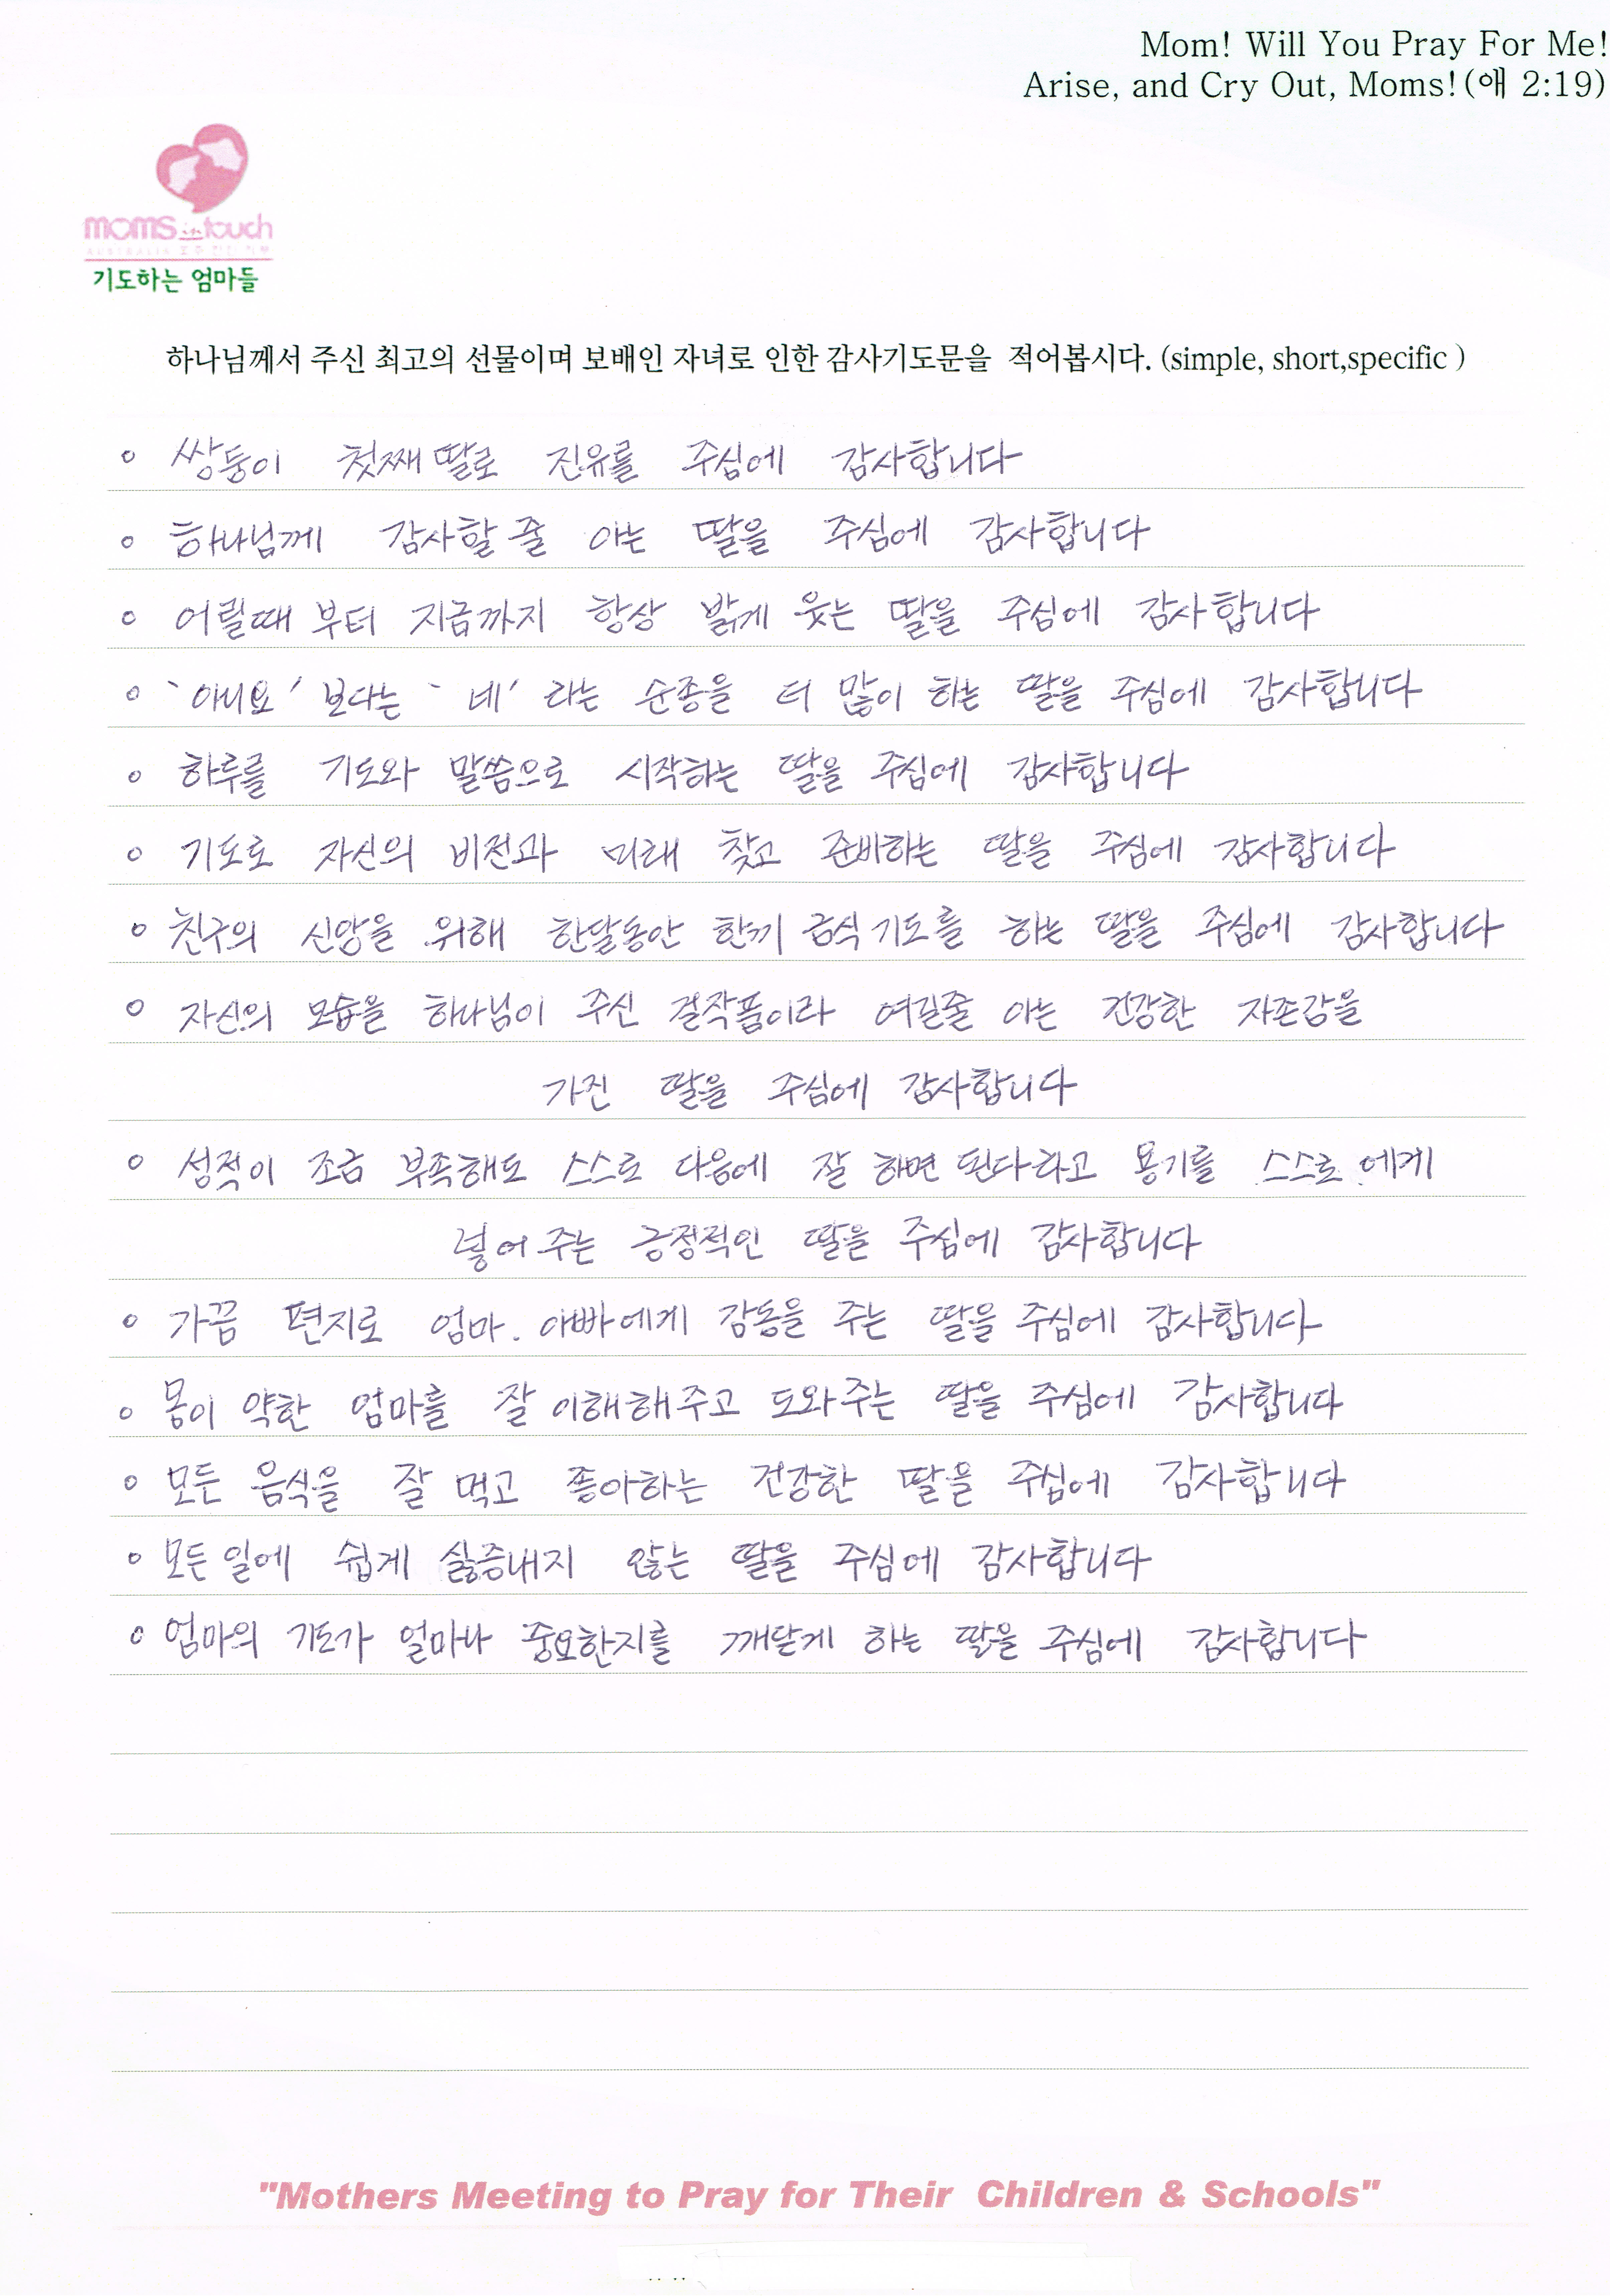 Mom! Will You Pray For Me!
Arise, and Cry Out, Moms!(애 2:19)
moms in touch
AUSTRALIA 호주
기도하는 엄마들
하나님께서 주신 최고의 선물이며 보배인 자녀로 인한 감사기도문을 적어봅시다. (simple, short,specific )
◦ 쌍둥이 첫째 딸로 진유를 주심에 감사합니다
◦ 하나님께 감사할 줄 아는 딸을 주심에 감사합니다
◦ 어릴때 부터 지금까지 항상 밝게 웃는 딸을 주심에 감사합니다
◦ `아니요' 보다는 `네' 라는 순종을 더 많이 하는 딸을 주심에 감사합니다
◦ 하루를 기도와 말씀으로 시작하는 딸을 주심에 감사합니다
◦ 기도로 자신의 비전과 미래 찾고 준비하는 딸을 주심에 감사합니다
◦ 친구의 신앙을 위해 한달동안 한끼 금식 기도를 하는 딸을 주심에 감사합니다
◦ 자신의 모습을 하나님이 주신 걸작품이라 여길줄 아는 건강한 자존감을
가진 딸을 주심에 감사합니다
◦ 성적이 조금 부족해도 스스로 다음에 잘 하면 된다라고 용기를 스스로에게
넣어 주는 긍정적인 딸을 주심에 감사합니다
◦ 가끔 편지로 엄마. 아빠에게 감동을 주는 딸을 주심에 감사합니다
◦ 몸이 약한 엄마를 잘 이해해주고 도와주는 딸을 주심에 감사합니다
◦ 모든 음식을 잘 먹고 좋아하는 건강한 딸을 주심에 감사합니다
◦ 모든 일에 쉽게 싫증내지 않는 딸을 주심에 감사합니다
◦ 엄마의 기도가 얼마나 중요한지를 깨닫게 하는 딸을 주심에 감사합니다
"Mothers Meeting to Pray for Their Children & Schools"